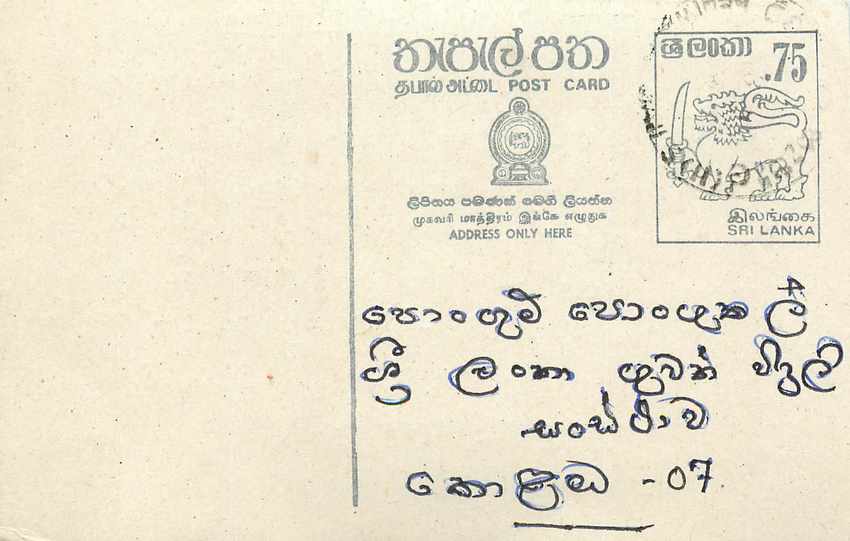 තැපැල් පත
தபால் அட்டை POST CARD
ලිපිනය පමණක් මෙහි ලියන්න
முகவரி மாத்திரம் இங்கே எழுதுக
ADDRESS ONLY HERE
ශ්‍රී ලංකා .75
இலங்கை
SRI LANKA
පොංගුම් පොංගල්
ශ්‍රී ලංකා ගුවන් විදුලි
සංස්ථාව
කොළඹ -07